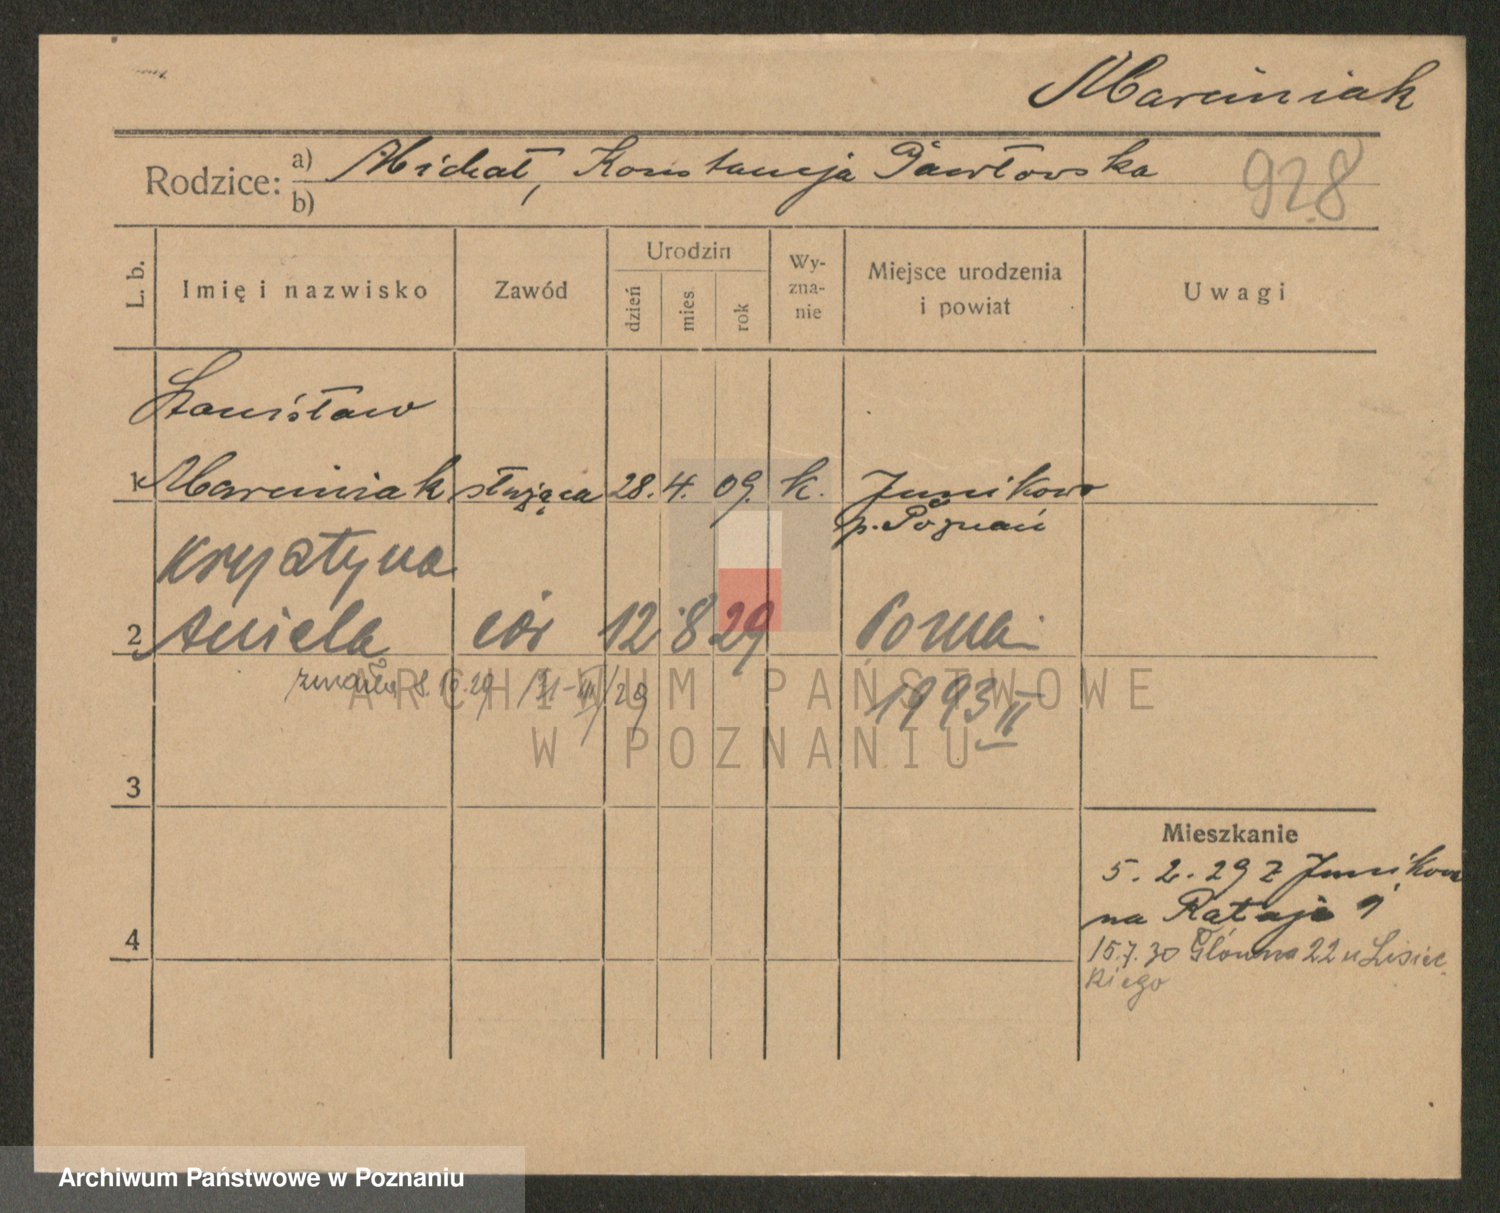 Marciniak
Rodzice: a) Michał, Konstancja Pawłowska
b)
928
L. b.
Imię i nazwisko
Zawód
Urodzin
dzień
mies.
rok
Wy-
zna-
nie
Miejsce urodzenia
i powiat
Uwagi
Stanisław
1 Marciniak służąca 28. 4. 09. k. Junikowo
p. Poznań
Krystyna
2 Aniela cór 12 8 29 Pozna
zmarła 8. 10. 29
1993 II
ARCHIWUM PAŃSTWOWE
W POZNANIU
3
Mieszkanie
5. 2. 29 z Junikowa
na Rataje 9
4
15.7.30 Główna 22 u Lisiec
kiego
Archiwum Państwowe w Poznaniu